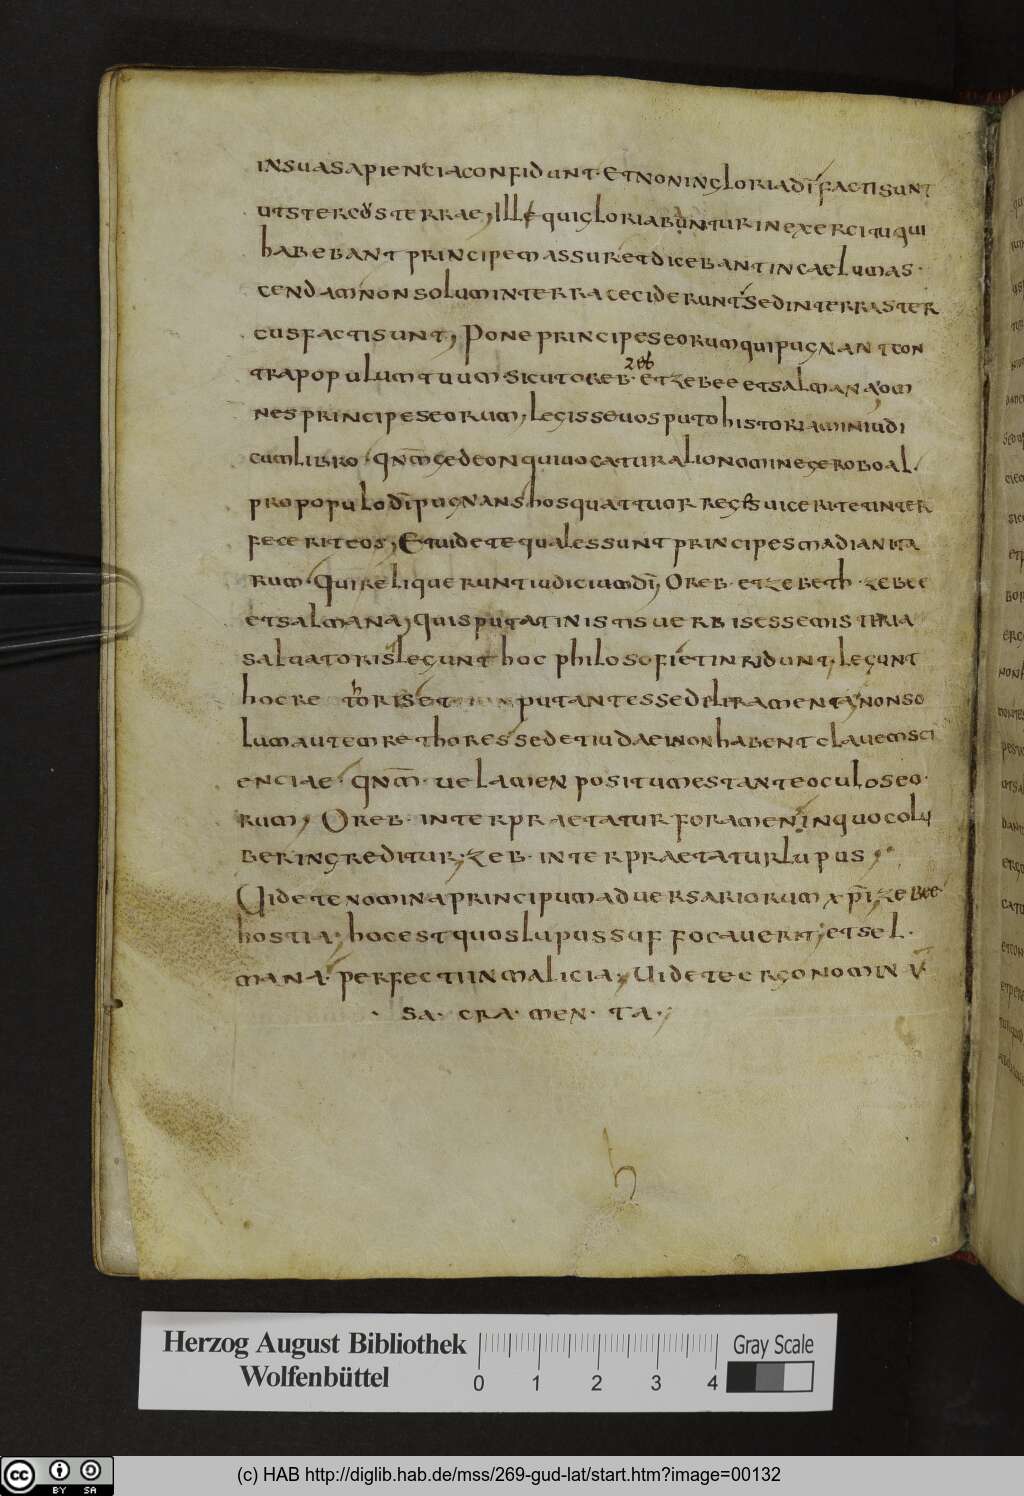 insuasapienciaconfidunt· Etnoningloriadī factisunt
utstercosterrae, Ille quigloriabuntur inexercitu qui
habebant principem assur etdicebant incaelumas·
cendam nonsolum interra ceciderunt sedinterraster
cusfactisunt, Pone principeseorum quipugnantcon
zeb
trapopulum tuum sicutoreb· etzebee etsalmana om
nesprincipeseorum, legisseuosputo historiaminiudi
cumlibro· qnm̄ gedeon quiuocatur alionomine geroboal·
propopulodīpugnans hosquattuor reges uicerit etinter
feceriteos, Etuidete qualessunt principesmadianita
rum· Quireliquerunt iudiciumdī, Oreb· etzebeth· zebee
etsalmana, quisputat inistisuerbis essemisteria
saluatoris legunt hoc philosofi etinridunt, legunt
hocre thoris et putantesse deliramenta, nonso
lumautem rethores sedetiudaei nonhabent clauemsci
enciae· qnm̄· uelamen positumest anteoculoseo·
rum, Oreb· interpraetatur foramen inquocolu
beringreditur, zeb· interpraetatur lupus,
Uidete nominaprincipum aduersariorum xpī, zebee
hostia, hocest quoslupus suffocauerit, etsel·
mana· perfecti inmalicia, Uidete ergo nomin v
· sa· cra· men· ta·,
h
Herzog August Bibliothek
Wolfenbüttel
0 1 2 3 4
Gray Scale
cc BY SA
(c) HAB http://diglib.hab.de/mss/269-gud-lat/start.htm?image=00132